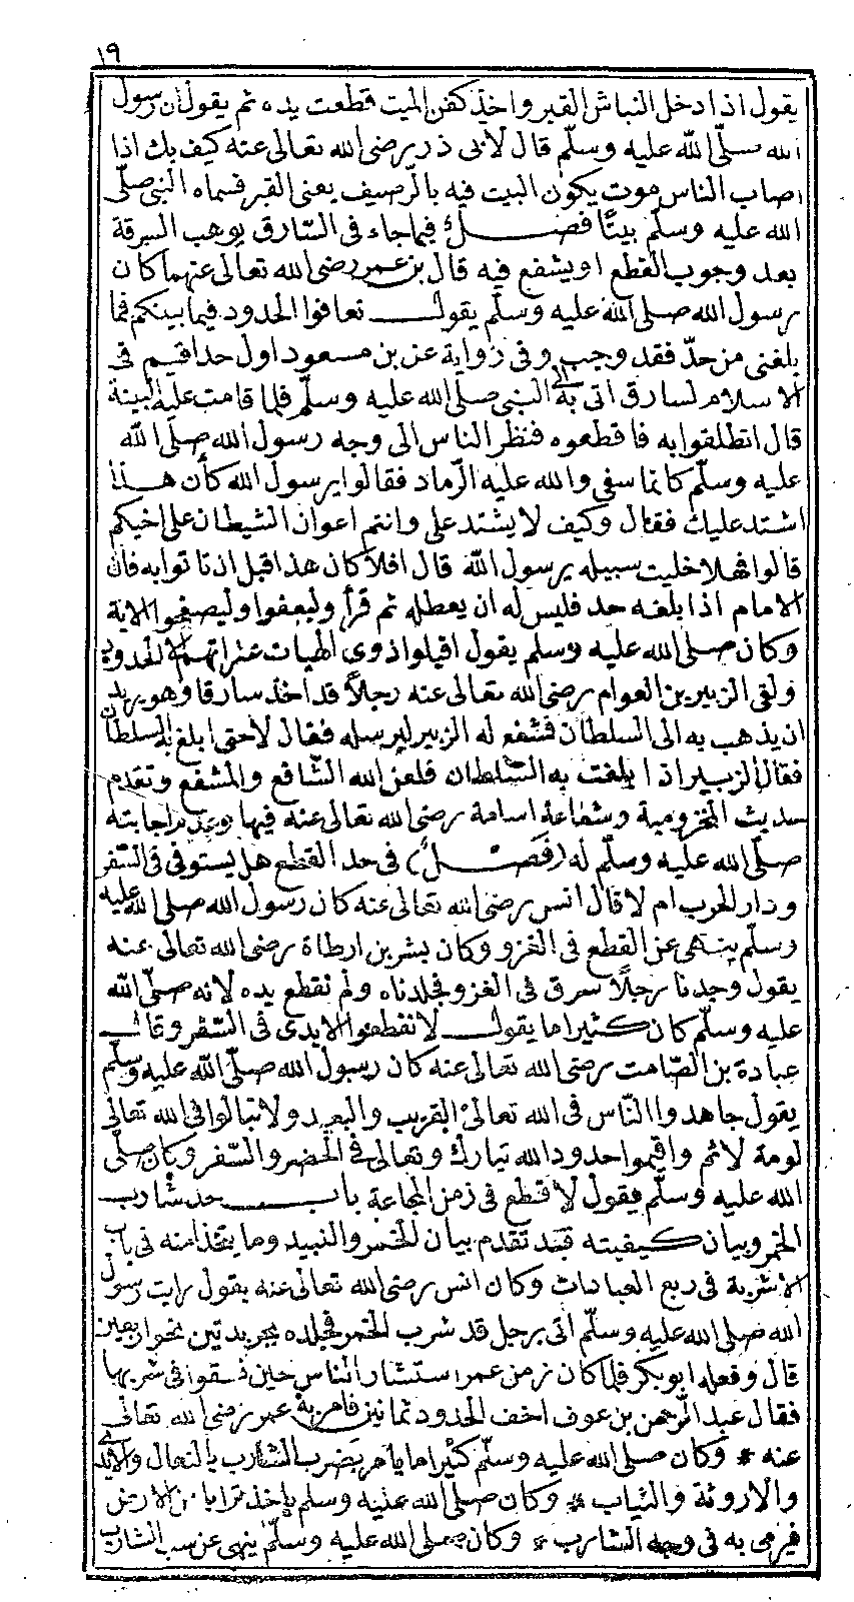 ١٩
يقول اذا دخل النباش القبر واخذ كفن الميت قطعت يده ثم يقول ان رسول
الله صلّى الله عليه وسلّم قال لأبى ذر رضى الله تعالى عنه كيف بك اذا
اصاب الناس موت يكون البيت فيه بالرصيف يعنى القبر فسماه النبى صلّى
الله عليه وسلّم بيتًا فصــل فيما جاء فى السّارق يوهب السرقة
بعد وجوب القطع او يشفع فيه قال بن عمر رضى الله تعالى عنهما كان
رسول الله صلى الله عليه وسلّم يقول تعافوا الحدود فيما بينكم فما
بلغنى من حدّ فقد وجب وفى رواية عن بن مسعود اول حد اقيم فى
الاسلام لسارق اتى به الى النبى صلى الله عليه وسلّم فلما قامت عليه البينة
قال انطلقوا به فاقطعوه فنظر الناس الى وجه رسول الله صلى الله
عليه وسلّم كانما سفى والله عليه الرّماد فقالوا يرسول الله كأن هذا
اشتد عليك فقال وكيف لا يشتد على وانتم اعوان الشيطان على اخيكم
قالوا فهلا خليت سبيله يرسول الله قال افلا كان هذا قبل ان تاتوا به فان
الامام اذا بلغه حد فليس له ان يعطله ثم قرأ وليعفوا وليصفحوا الاية
وكان صلى الله عليه وسلم يقول اقيلوا ذوى الهيات عثراتهم الا الحدود
ولقى الزبير بن العوام رضى الله تعالى عنه رجلاً قد اخذ سارقا وهو يريد
ان يذهب به الى السلطان فشفع له الزبير ليرسله فقال لا حتى ابلغ به السلطان
فقال الزبير اذا بلغت به السّلطان فلعن الله الشّافع والمشفع وتقدم
حديث المخزومية وشفاعة اسامة رضى الله تعالى عنه فيها وعدم اجابته
صلّى الله عليه وسلّم له (فَصْــلٌ) فى حد القطع هل يستوفى فى السّفر
ودار الحرب ام لا قال انس رضى الله تعالى عنه كان رسول الله صلى الله عليه
وسلّم ينهى عن القطع فى الغزو وكان بشر بن ارطاة رضى الله تعالى عنه
يقول وجدنا رجلاً سرق فى الغزو فجلدناه ولم نقطع يده لانه صلّى الله
عليه وسلّم كان كثيرا ما يقول لا تقطعوا الايدى فى السّفر وقال
عبادة بن الصّامت رضى الله تعالى عنه كان رسول الله صلّى الله عليه وسلّم
يقول جاهدوا النّاس فى الله تعالى القريب والبعيد ولا تبالوا فى الله تعالى
لومة لائم واقيموا حدود الله تبارك وتعالى فى الحضر والسّفر وكان صلّى
الله عليه وسلّم يقول لا قطع فى زمن المجاعة باب حد شارب
الخمر وبيان كيفيته قد تقدم بيان للخمر والنبيد وما يتخذ منه فى باب
الاشربة فى ربع العبادات وكان انس رضى الله تعالى عنه يقول رايت رسول
الله صلى الله عليه وسلّم اتى برجل قد شرب الخمر فجلده بجريدتين نحو اربعين
قال وفعله ابو بكر فلما كان زمن عمر استشار الناس حين فسقوا فى شربها
فقال عبد الرّحمن بن عوف اخف الحدود ثمانين فامر به عمر رضى الله تعالى
عنه * وكان صلى الله عليه وسلّم كثيرا ما يأمر بضرب الشارب بالنعال والايدى
والاروثة والثياب * وكان صلى الله عليه وسلم ياخذ ترابا من الارض
فيرمى به فى وجه الشارب * وكان صلى الله عليه وسلّم ينهى عن سب الشارب